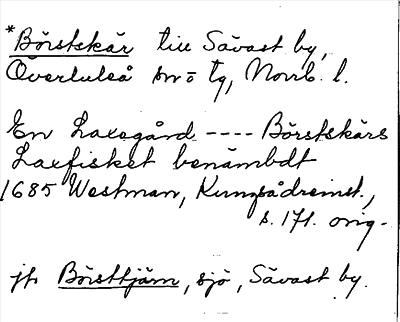 *Börstskär till Sävast by,
Överluleå sn o tg, Norrb. l.
En Laxegård ---- Börstskärs
Laxfisket benämbdt
1685 Westman, Kungsådreinst.,
s. 171. orig.
jfr Börsttjärn, sjö, Sävast by.